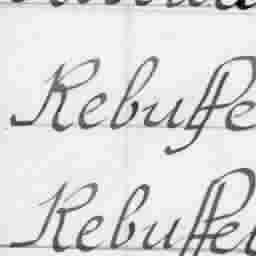 Rebuffe
Rebuffet